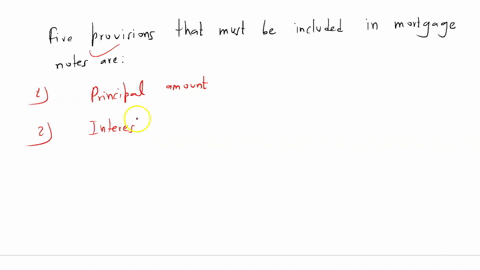 Five provisions that must be included in mortgage
notes are:
1) Principal amount
2) Interes